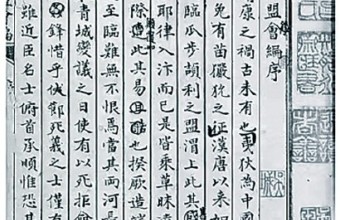 盟會編序
康之禍古未有也夷狄為中
免有苗玁狁之征漢唐以來如
臨瓜步頡利之盟渭上此其
耶律入汴而已是皆乘草昧
際遭此其易且酷也揆厥造
至臨難無不恨焉當其兩河長
青城變議之日使有以死拒
鋒惜乎仗節死義之士僅有
雖近臣名士俯首承順惟恐其